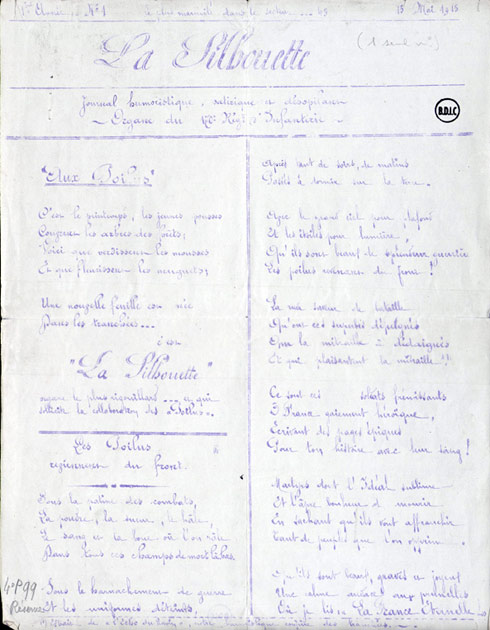 1re Année N° 1 le plus dans le secteur 15 Mai 1915
La Silhouette
(1 seul n°)
Journal humoristique, satirique et désopilant
Organe du Régt d'Infanterie
B.D.I.C
"Aux Poilus"
C'est le printemps, les jeunes pousses
les arbres des forêts;
Voici que verdissent les mousses
Et que fleurissent les muguets;
Une nouvelle feuille est née
Dans les tranchées...
c'est
"La Silhouette"
organe le plus et qui
des Poilus.
Les Poilus
reviennent du front
Sous la patine des combats,
La poudre, la sueur, le hâle,
Le sang et la boue où l'on râle
Dans tous ces champs de mort
Sous le harnachement de guerre
Et les uniformes déteints,
Après tant de soirs, de matins
Passés à dormir sur la terre.
Avec le grand ciel pour plafond
Et les étoiles pour lumière,
Qu'ils sont beaux de guerrière
Les poilus revenant du front!
La mâle saveur de bataille
Qu'ont ces
Que la mitraille a
Et qui plaisantent la mitraille!!
Ce sont ces soldats
O France gaiement héroïque,
Écrivant des pages épiques
Pour ton histoire avec leur sang!
Martyrs dont l'Idéal sublime
Est l'âpre bonheur de mourir
En sachant qu'ils vont affranchir
tant de peuples que l'on opprime.
Qu'ils sont beaux, graves et joyeux
Une aux prunelles
Où je lis "La France éternelle"
4°P 99
Réserve